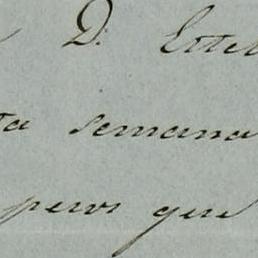 D. Este
ta semana
pero que